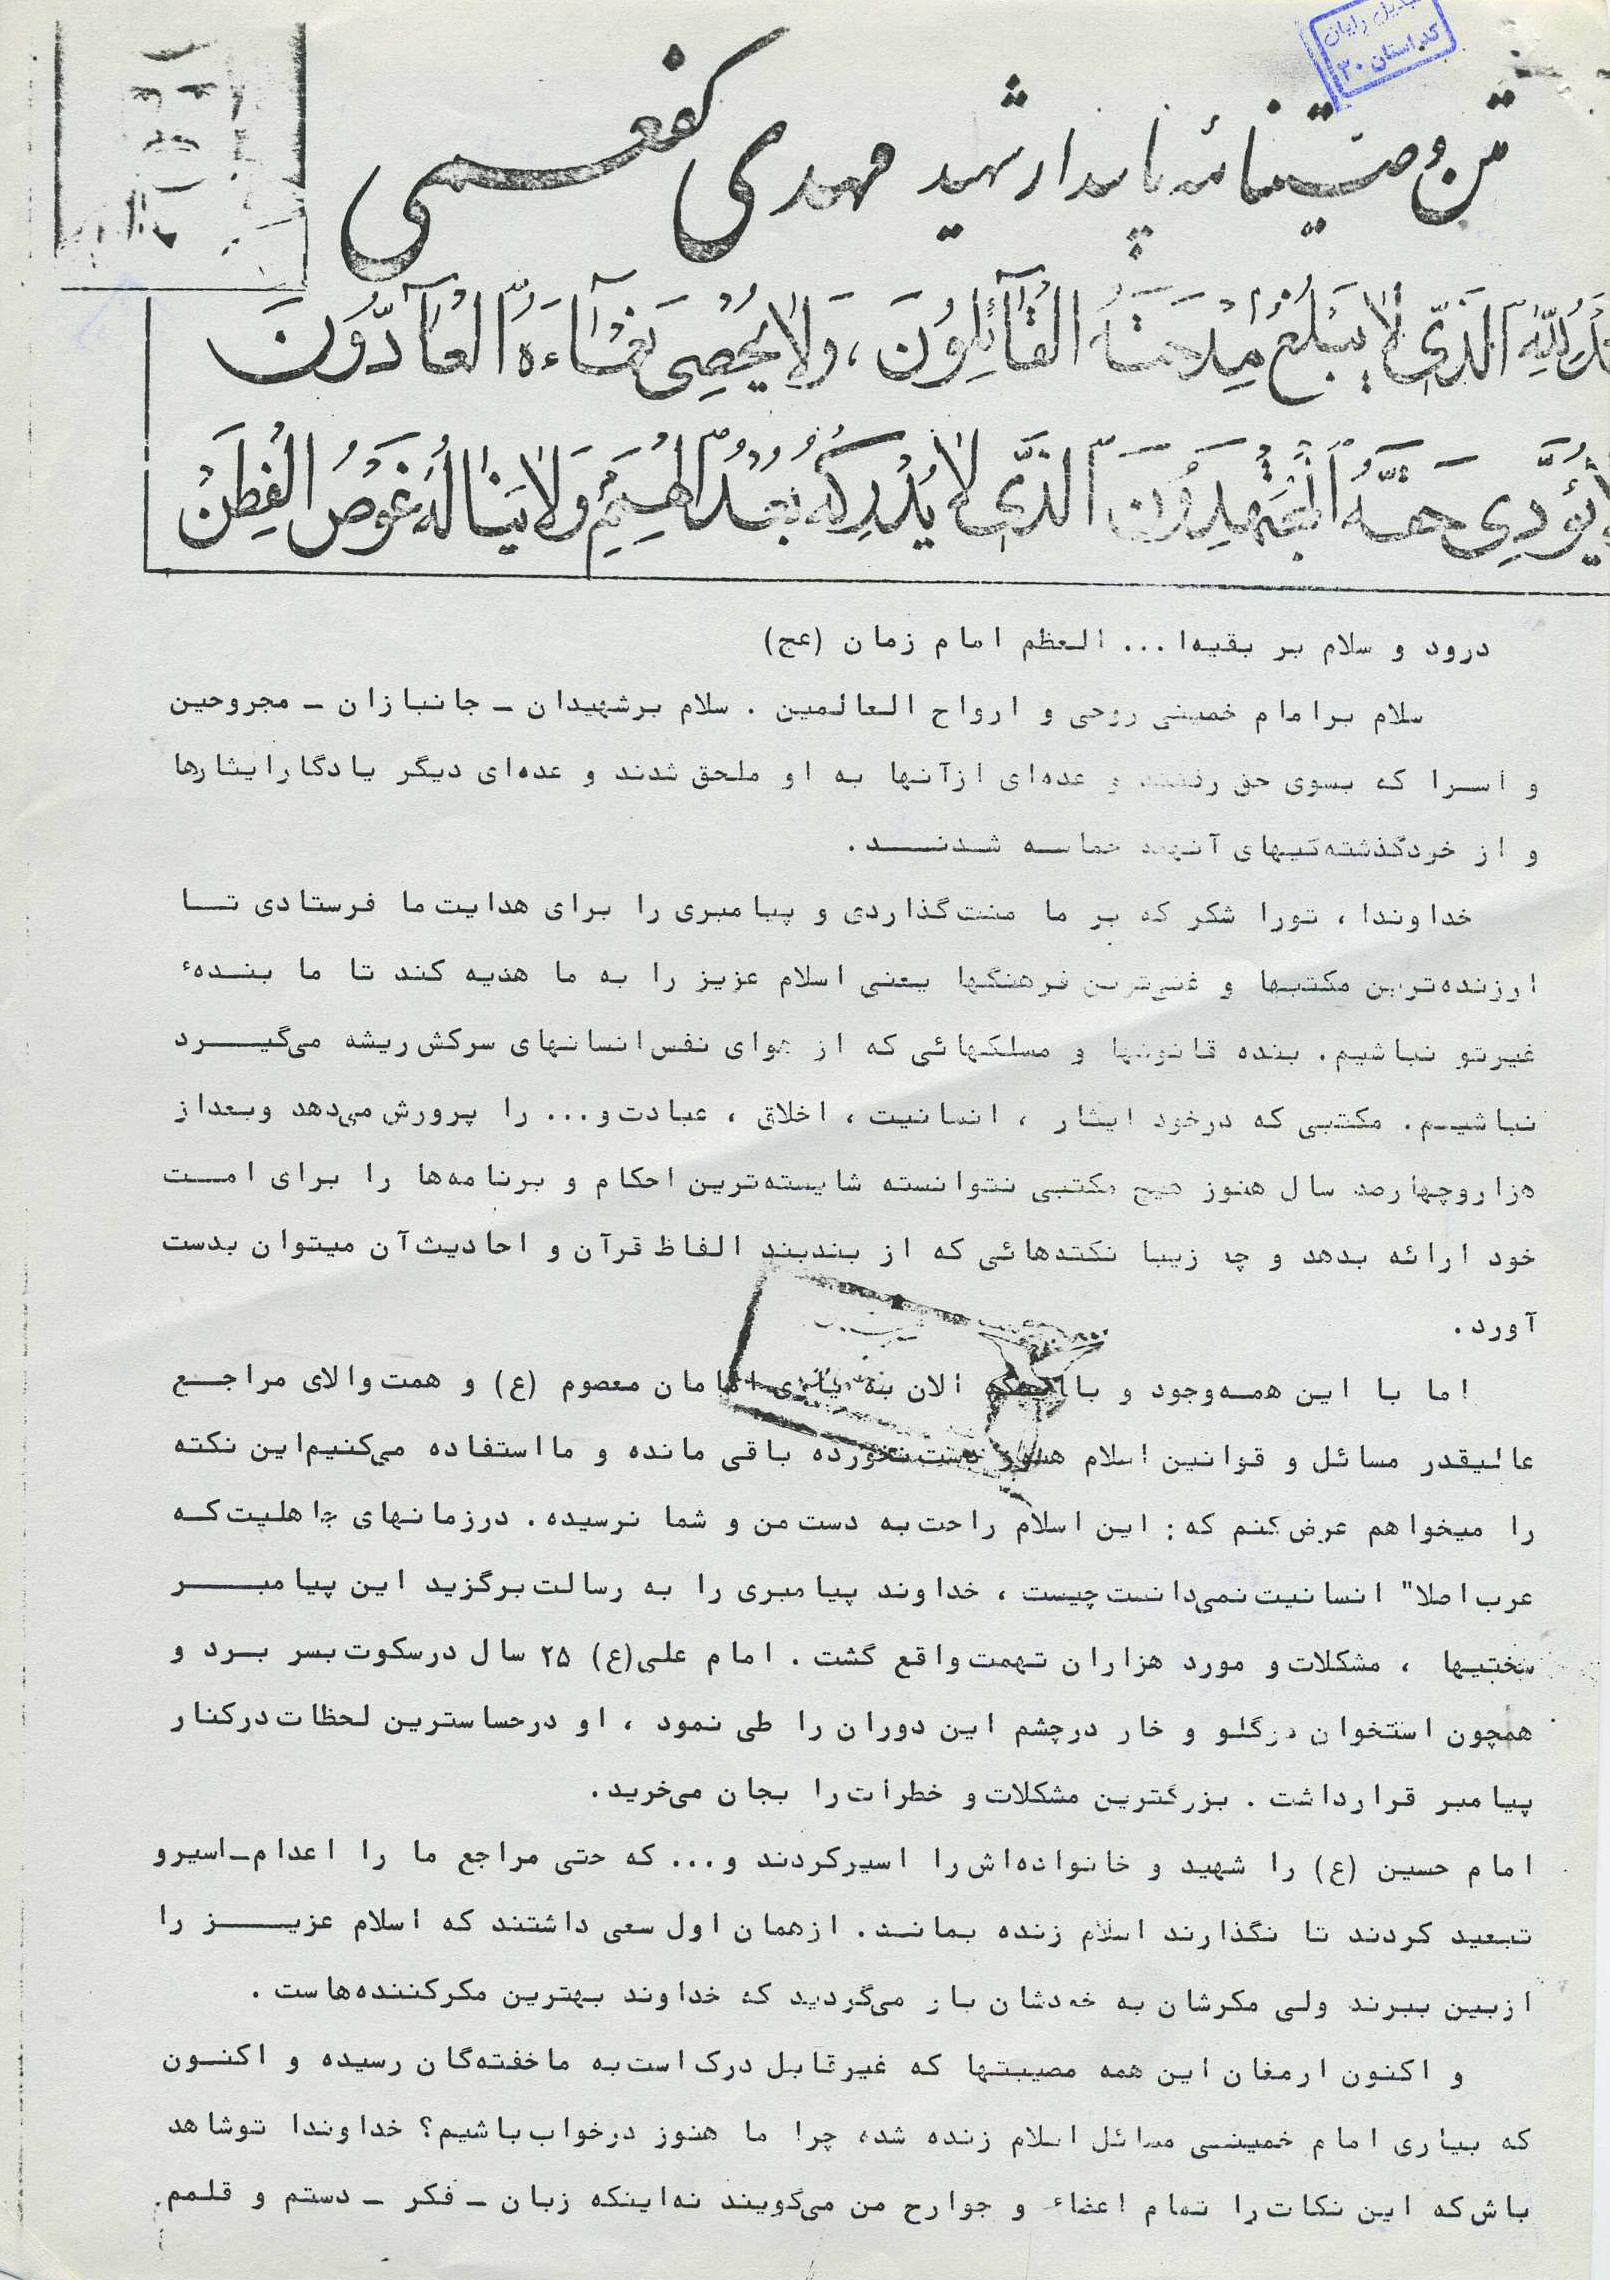 تبدیل رایان
کد استان ۳۰
متن وصیتنامه پاسدار شهید مهدی کفعمی
لِلّٰهِ الَّذی لاٰ یَبْلُغُ مِدْحَتَهُ الْقٰآئِلُونَ، وَلاٰ یُحْصِی نَعْمٰآءَهُ الْعٰآدُّونَ
یُؤَدِّی حَقَّهُ الْمُجْتَهِدُونَ الَّذی لاٰ یُدْرِکُهُ بُعْدُ الْهِمَمِ وَلاٰ یَنٰالُهُ غَوْصُ الْفِطَنْ
درود و سلام بر بقیه‌ا... العظم امام زمان (عج)
سلام برامام خمینی روحی و ارواح العالمین . سلام برشهیدان ـ جانبازان ـ مجروحین
و اسرا که بسوی حق رفتند و عده‌ای ازآنها به او ملحق شدند و عده‌ای دیگر یادگارایثارها
و از خردگذشته‌گیهای آنهمه حماسه شدند.
خداوندا ، تورا شکر که بر ما منت‌گذاردی و پیامبری را برای هدایت‌ما فرستادی تا
ارزنده‌ترین مکتبها و غنی‌ترین فرهنگها یعنی اسلام عزیز را به ما هدیه کند تا ما بندهٔ
غیرتو نباشیم. بنده قانونها و مسلکهائی که از هوای نفس‌انسانهای سرکش‌ریشه می‌گیرد
نباشیم. مکتبی که درخود ایثار ، انسانیت ، اخلاق ، عبادت‌و... را پرورش‌می‌دهد وبعداز
هزاروچهارصد سال هنوز هیچ مکتبی نتوانسته شایسته‌ترین احکام و برنامه‌ها را برای امت
خود ارائه بدهد و چه زیبا نکته‌هائی که از بندبند الفاظ قرآن و احادیث‌آن میتوان بدست
آورد.
اما با این همه‌وجود و با اینکه الان به یاری امامان معصوم (ع) و همت‌والای مراجع
عالیقدر مسائل و قوانین اسلام هنوز دست‌نخورده باقی مانده و مااستفاده می‌کنیم‌این نکته
را میخواهم عرض‌کنم که: این اسلام راحت‌به دست‌من و شما نرسیده. درزمانهای جاهلیت‌که
عرب‌اصلا" انسانیت‌نمی‌دانست‌چیست ، خداوند پیامبری را به رسالت‌برگزید این پیامبر
سختیها ، مشکلات‌و مورد هزاران تهمت‌واقع گشت . امام علی(ع) ۲۵ سال درسکوت‌بسر برد و
همچون استخوان درگلو و خار درچشم این دوران را طی نمود ، او درحساسترین لحظات‌درکنار
پیامبر قرارداشت . بزرگترین مشکلات‌و خطرات‌را بجان می‌خرید.
امام حسین (ع) را شهید و خانواده‌اش‌را اسیرکردند و... که حتی مراجع ما را اعدام‌ـ‌اسیرو
تبعید کردند تا نگذارند اسلام زنده بماند. ازهمان اول سعی داشتند که اسلام عزیز را
ازبین ببرند ولی مکرشان به خودشان باز می‌گردید که خداوند بهترین مکرکننده‌هاست .
و اکنون ارمغان این همه مصیبتها که غیرقابل درک است‌به ماخفته‌گان رسیده و اکنون
که بیاری امام خمینی مسائل اسلام زنده شده چرا ما هنوز درخواب‌باشیم؟ خداوندا توشاهد
باش‌که این نکات‌را تمام اعضاء و جوارح من می‌گویند نه‌اینکه زبان ـ فکر ـ دستم و قلمم